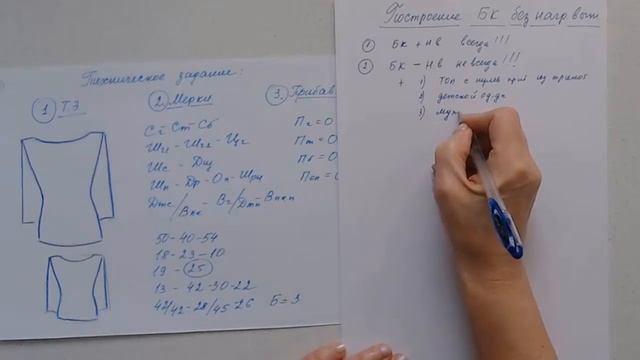 Техническое задание:
① ТЭ
② Мерки
③. Прибав
Сг Ст Сб
Шг - Шг₂ - Цг
Шс - Дш
Шп - Др - Оп - Шрн
Дтс/Впк - Вг/Дтп - Впкп
50-40-54
18-23-10
19 - 25
13 - 42-30-22
42/42-28/45-26 Б=3
Пг=0
Пт=0
Пб=0
Поп=0
Построение БК без нагр выт
① БК + НВ всегда!!!
② БК - НВ не всегда!!!
+ 1) Топ с нулев приб из трикот
2) детской од-ды
3) муж